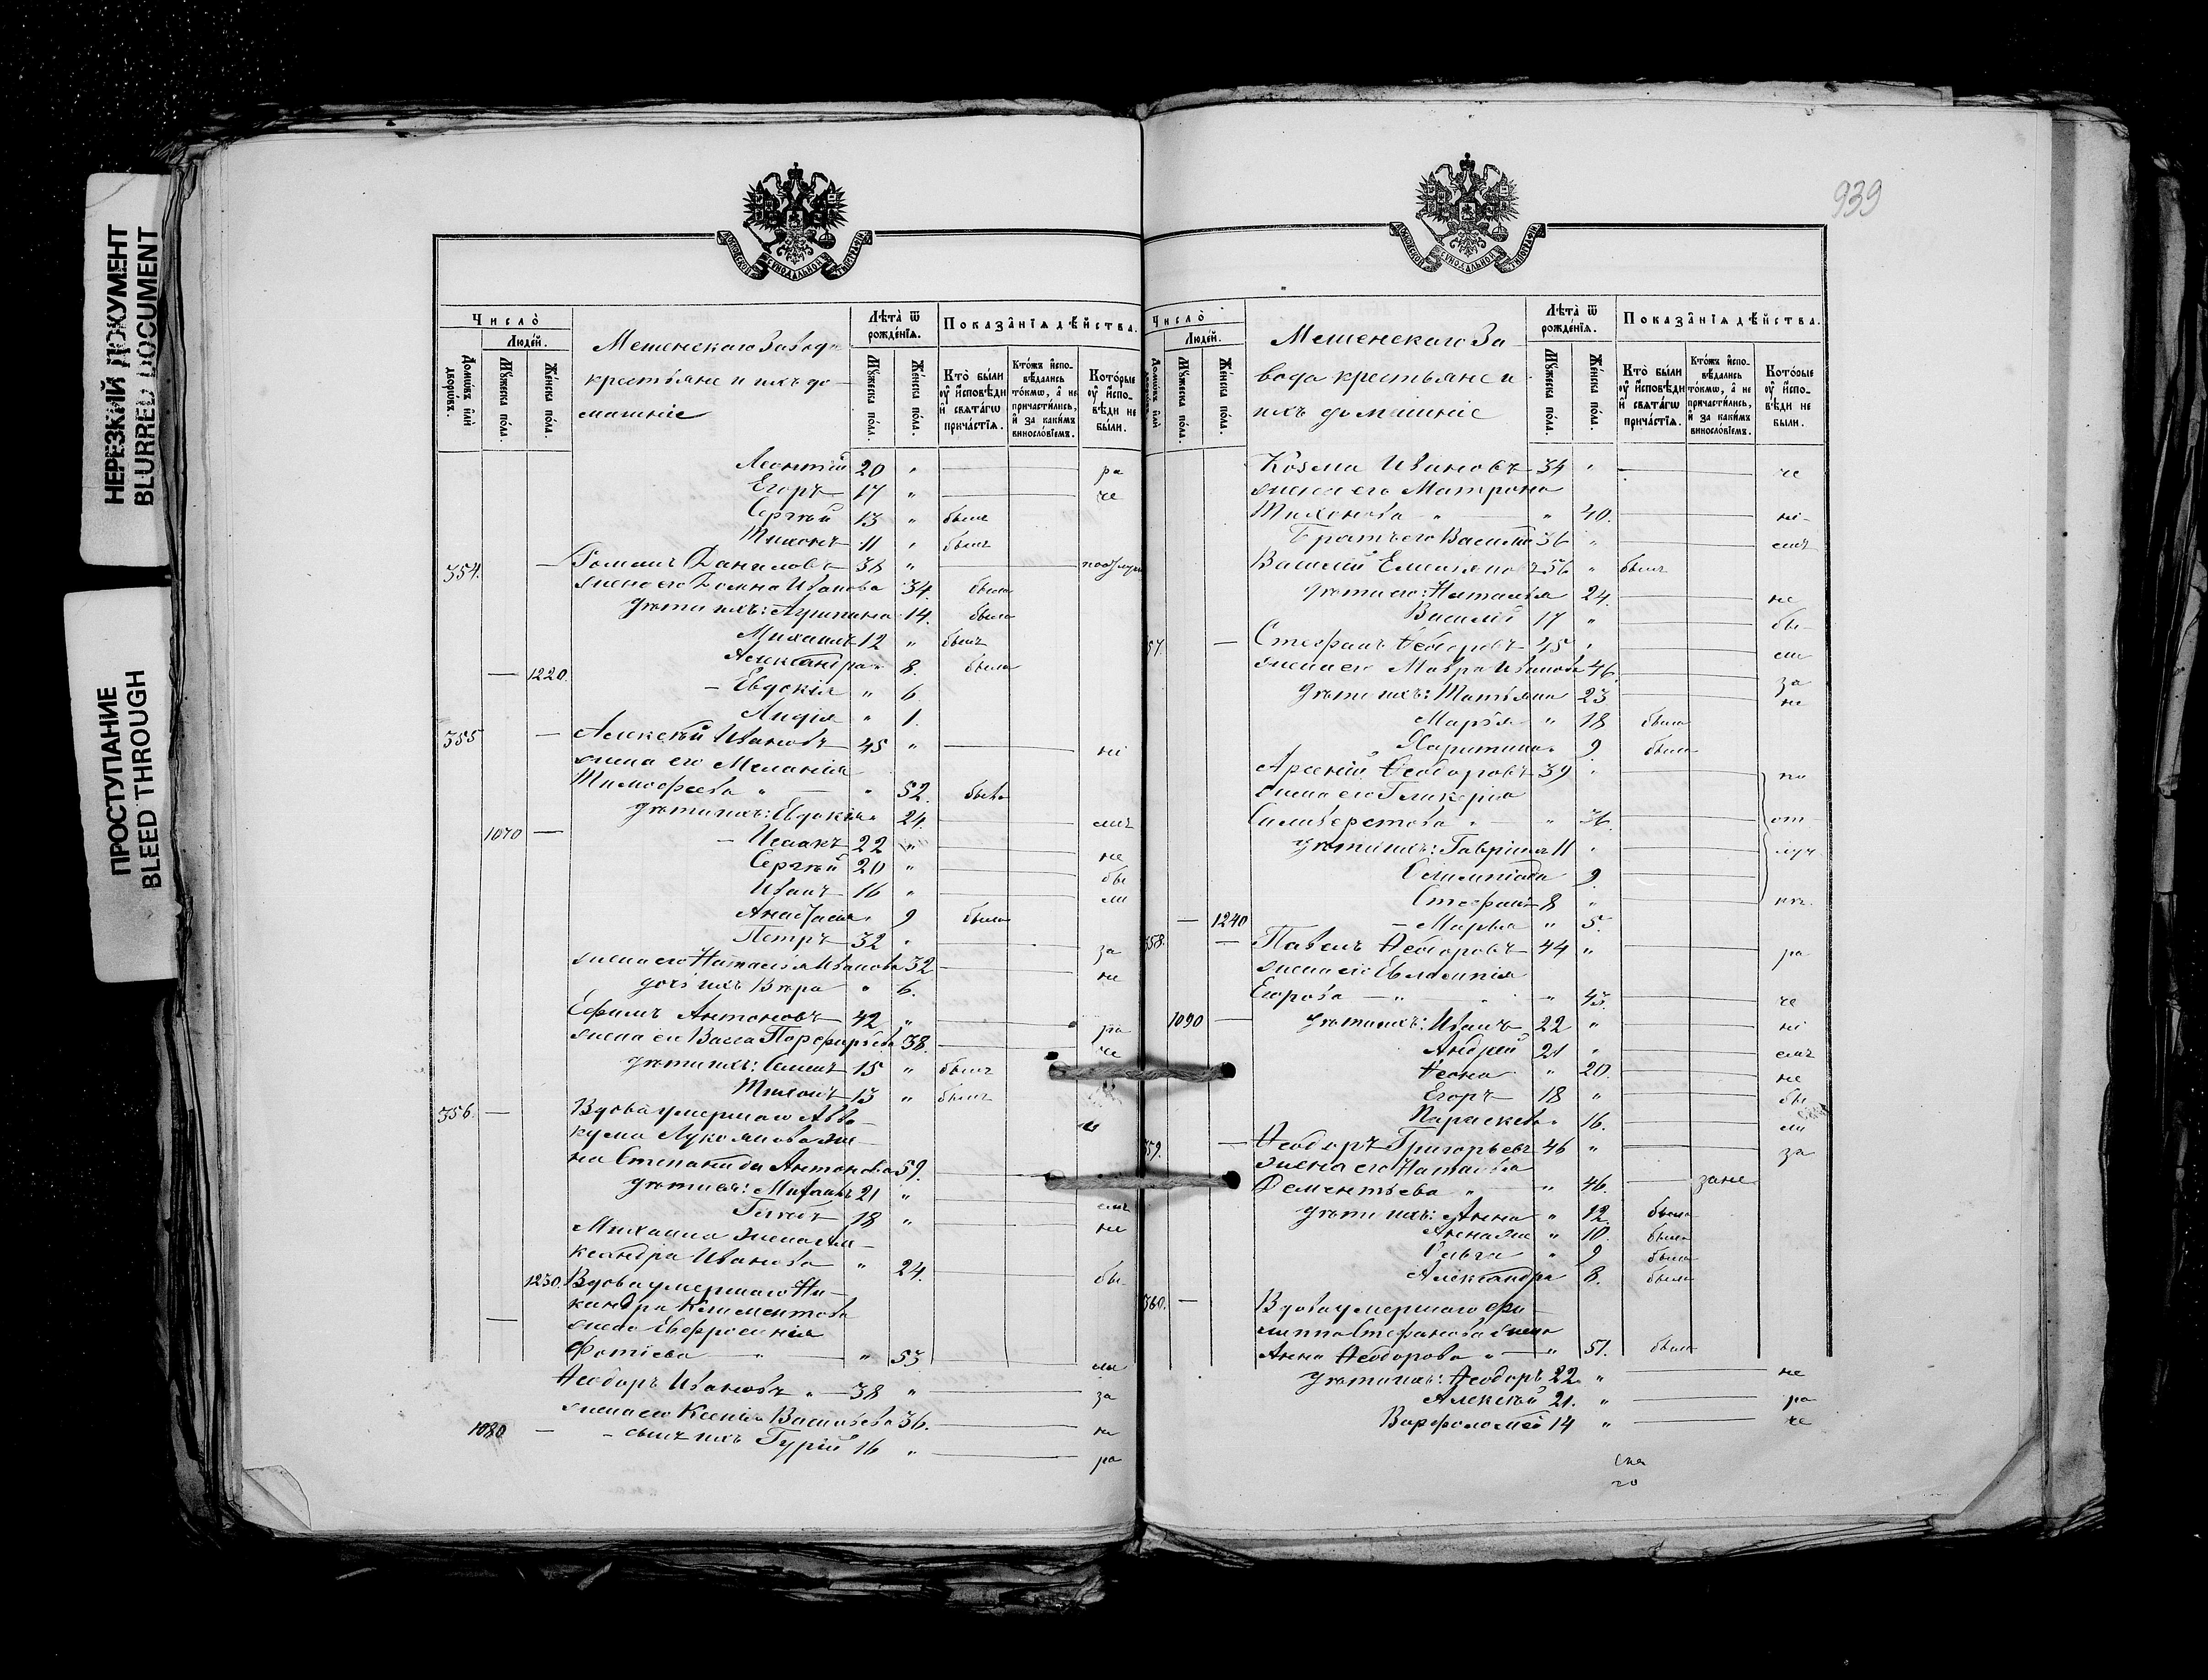 НЕРЕЗКИЙ ДОКУМЕНТ
BLURRED DOCUMENT
ПРОСТУПАНИЕ
BLEED THROUGH
Число̀
Людє́й.
Домѡ́въ и҆лѝ дворѡ́въ.
Му́жеска по́ла.
Же́нска по́ла.
Завода
крестьяне и ихъ до-
машніе
Лѣ́та ѿ рожде́нїѧ.
Му́жеска по́ла.
Же́нска по́ла.
Показа̑нїѧ дѣ́йства.
Кто̀ бы́ли ᲂу҆ и҆сповѣ́ди и҆ свѧта́гѡ прича́стїѧ.
Кто́жъ и҆спо- вѣ́дались то́кмѡ, а҆ не причасти́лись, и҆ за каки́мъ винословїемъ.
Кото́рые ᲂу҆ и҆спо- вѣ́ди не бы́ли.
Леонтій 20 " ра
Егоръ 17 " че
Сергѣй 13 " былъ
Тихонъ 11 " былъ
354. — Даниловъ 38 "
жена его Домна Иванова 34. была
дѣти ихъ: Агрипина 14. была
Михаилъ 12 " былъ
Александра " 8. была
— 1220. — Евдокія " 6
Лидія " 1.
355 — Алексѣй Ивановъ 45 " ні
жена его Меланія
Тимофеева " — " 52. была
дѣти ихъ: Евдокія " 24. емъ
1070 — — Исаакъ 22 " не
Сергѣй 20 " бы
Иванъ 16 " ли
Анастасія " 9 была
Петръ 32 " за
жена его Наталія Иванова 32 не
дочь ихъ Вѣра " 6.
Ефимъ Антоновъ 42 " ра
жена его Васса Порфирьева 38. че
дѣти ихъ: Семенъ 15 " былъ
Тихонъ 13 " былъ
356. — Вдова умершаго Авва-
кума Лукоянова же-
на Степанида Антонова 59.
дѣти ея: Михаилъ 21 " емъ
Глѣбъ 18 " не
Михаила жена Але-
ксандра Иванова " 24. бы
1230. Вдова умершаго Ни-
кандра Климентова
— жена Евфросинія
Фотіева — " — " 53 ли
Ѳеодоръ Ивановъ " — 38 " за
жена его Ксенія Васильева 36. не
1080 — — сынъ ихъ Гурій 16 " ра
939
Число̀
Людє́й.
Му́жеска по́ла.
Же́нска по́ла.
За-
вода крестьяне и
ихъ домашніе
Лѣ́та ѿ рожде́нїѧ.
Му́жеска по́ла.
Же́нска по́ла.
Показа̑нїѧ дѣ́йства.
Кто̀ бы́ли ᲂу҆ и҆сповѣ́ди и҆ свѧта́гѡ прича́стїѧ.
Кто́жъ и҆спо- вѣ́дались то́кмѡ, а҆ не причасти́лись, и҆ за каки́мъ винословїемъ.
Кото́рые ᲂу҆ и҆спо- вѣ́ди не бы́ли.
Козма Ивановъ 34 " че
жена его Матрона
Тихонова " — " 40. ні-
Братъ его Василій 36 " емъ
Василій Емельяновъ 56 " былъ
дѣти его: Наталья 24. не
Василій 17 " бы-
57. — Стефанъ Ѳеодоровъ 45 " ли
жена его Мавра Иванова 46. за
дѣти ихъ: Татьяна 23 не
Марія " 18 была
Харитина " 9 была
Арсеній Ѳеодоровъ 39 " по
жена его Гликерія
Сильверстова " — " от
дѣти ихъ: Гавріилъ 11 " луч
Олимпіада 9.
Стефанъ 8 "
— 1240 — Марья " 5.
358. — Павелъ Ѳеодоровъ 44 " ра
жена его Евлампія
Егорова — " " 43. че
1090 — дѣти ихъ: Иванъ 22 " ні
Андрей 21 " емъ
" 20. не
Егоръ 18 " бы
Параскева " 16. ли
359. — Ѳеодоръ Григорьевъ 46 " за
жена его Наталья
Дементьева " " 46. зане
дѣти ихъ: Анна " 12. была
" 10. была
Ольга " 9 была
Александра 8. была
360. — Вдова умершаго Фи-
липпа Стефанова жена
Анна Ѳеодорова " — " 51. была
дѣти ихъ: Ѳеодоръ 22 " не
Алексѣй 21. " ра
Варфоломей 14 " че